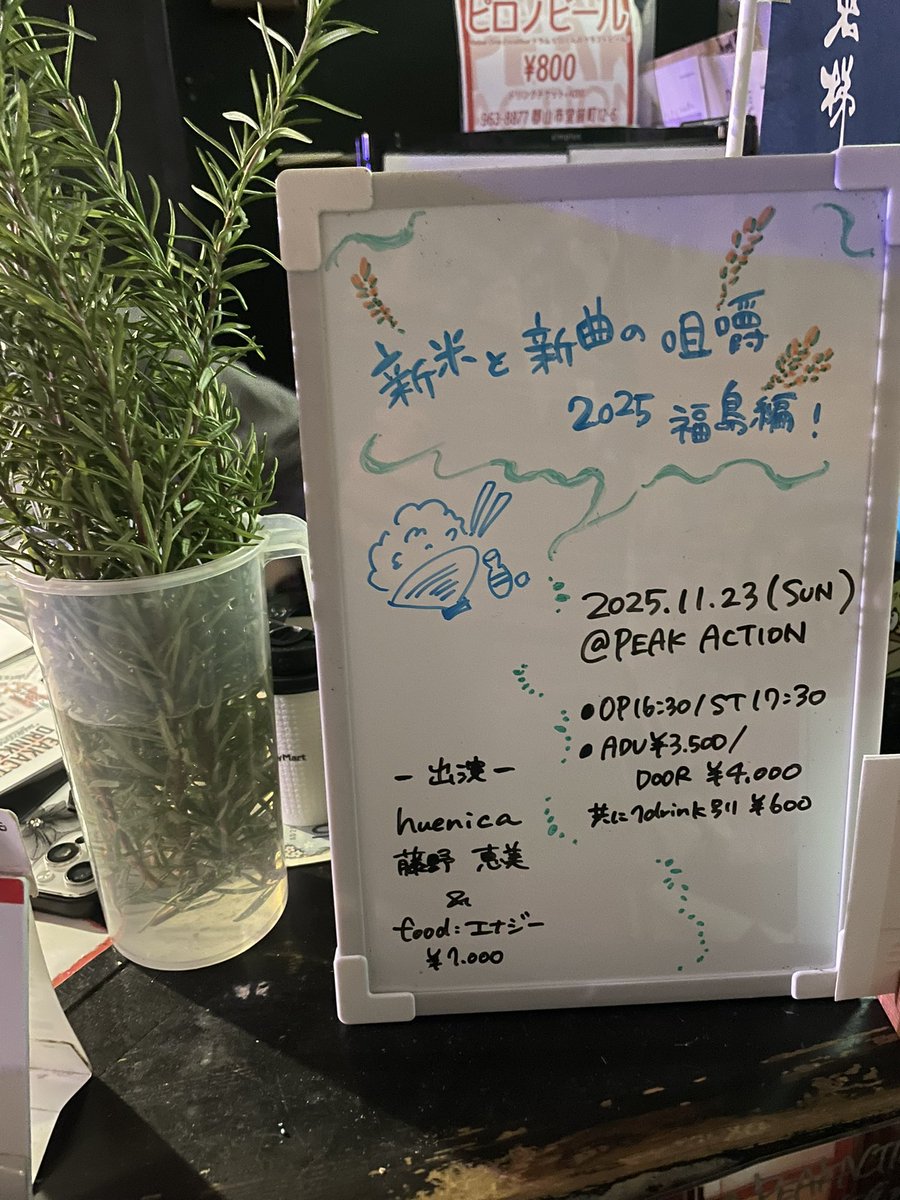 ピロノビール
¥800
963-8877 郡山市堂前町12-6
新米と新曲の咀嚼
2025 福島編!
2025.11.23(SUN)
@PEAK ACTION
●OP16:30/ST17:30
●ADV¥3.500/
DOOR ¥4.000
共に1drink別 ¥600
ー出演ー
huenica
藤野 恵美
&
food:エナジー
¥1.000
Mart